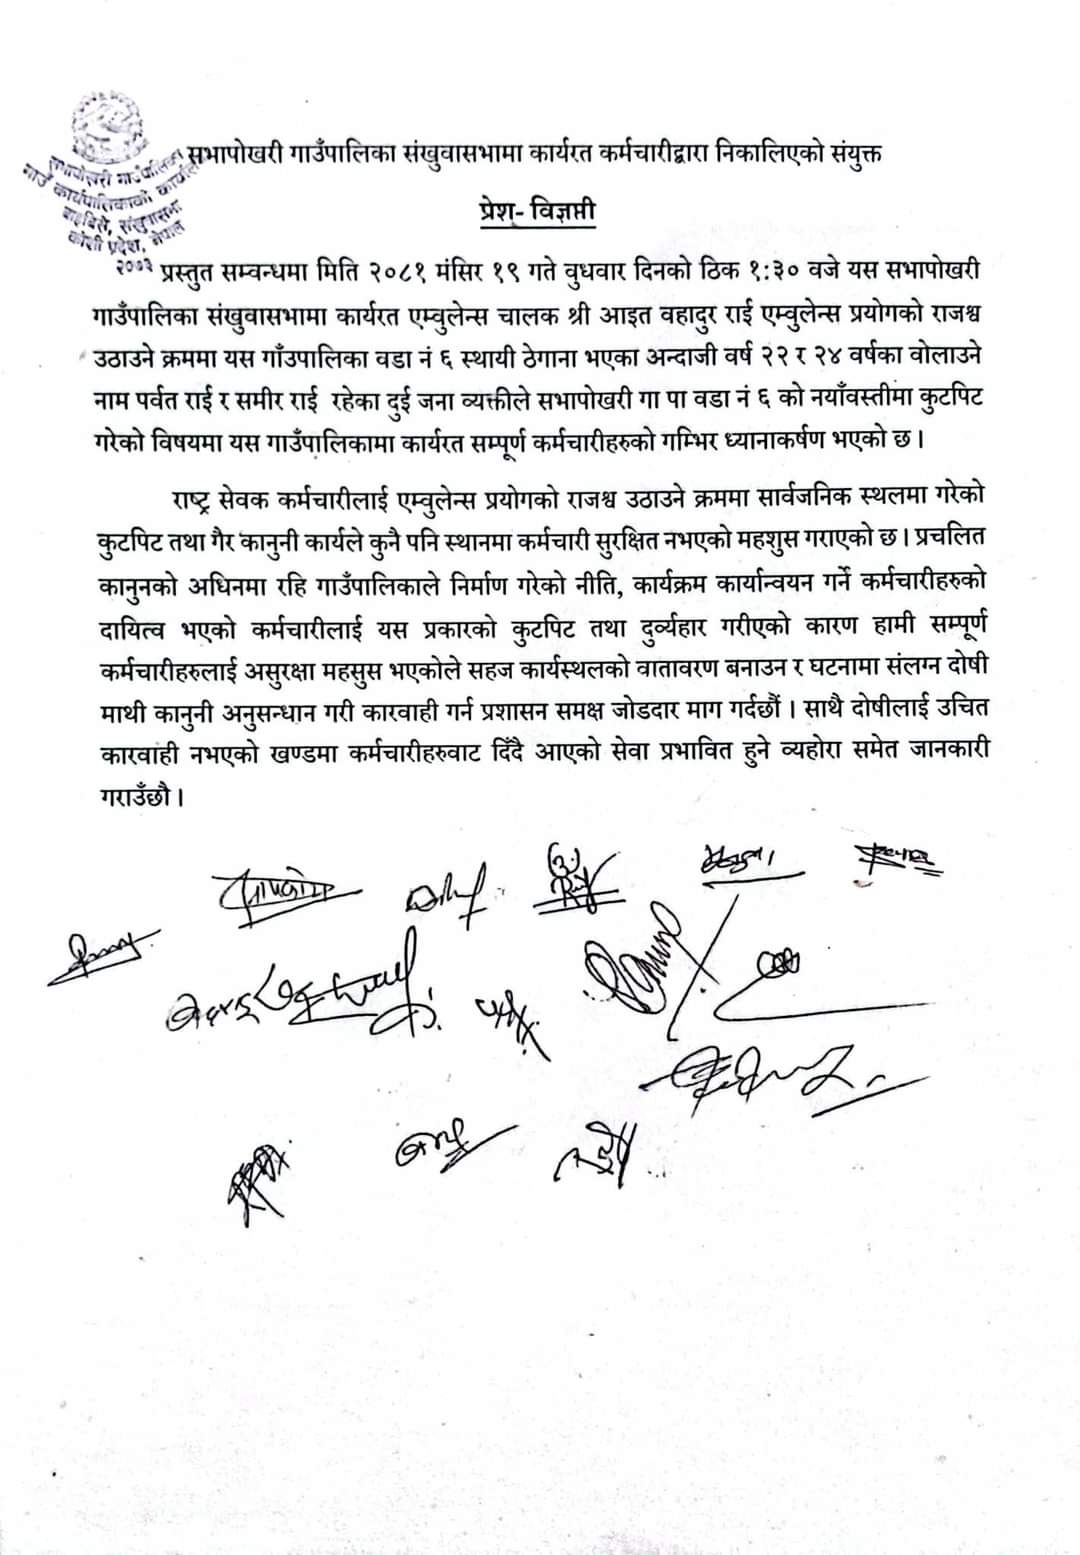 सभापोखरी गाउँपालिका संखुवासभामा कार्यरत कर्मचारीद्वारा निकालिएको संयुक्त
प्रेश- विज्ञप्ती
सभापोखरी गाउँपालिका
गाउँ कार्यपालिकाको कार्यालय
बाह्रबिसे, संखुवासभा
कोशी प्रदेश, नेपाल
२०७३
प्रस्तुत सम्वन्धमा मिति २०८१ मंसिर १९ गते वुधवार दिनको ठिक १:३० वजे यस सभापोखरी
गाउँपालिका संखुवासभामा कार्यरत एम्वुलेन्स चालक श्री आइत वहादुर राई एम्वुलेन्स प्रयोगको राजश्व
उठाउने क्रममा यस गाँउपालिका वडा नं ६ स्थायी ठेगाना भएका अन्दाजी वर्ष २२ र २४ वर्षका वोलाउने
नाम पर्वत राई र समीर राई रहेका दुई जना व्यक्तीले सभापोखरी गा पा वडा नं ६ को नयाँवस्तीमा कुटपिट
गरेको विषयमा यस गाउँपालिकामा कार्यरत सम्पूर्ण कर्मचारीहरुको गम्भिर ध्यानाकर्षण भएको छ ।
राष्ट्र सेवक कर्मचारीलाई एम्वुलेन्स प्रयोगको राजश्व उठाउने क्रममा सार्वजनिक स्थलमा गरेको
कुटपिट तथा गैर कानुनी कार्यले कुनै पनि स्थानमा कर्मचारी सुरक्षित नभएको महशुस गराएको छ । प्रचलित
कानुनको अधिनमा रहि गाउँपालिकाले निर्माण गरेको नीति, कार्यक्रम कार्यान्वयन गर्ने कर्मचारीहरुको
दायित्व भएको कर्मचारीलाई यस प्रकारको कुटपिट तथा दुर्व्यहार गरीएको कारण हामी सम्पूर्ण
कर्मचारीहरुलाई असुरक्षा महसुस भएकोले सहज कार्यस्थलको वातावरण बनाउन र घटनामा संलग्न दोषी
माथी कानुनी अनुसन्धान गरी कारवाही गर्न प्रशासन समक्ष जोडदार माग गर्दछौं । साथै दोषीलाई उचित
कारवाही नभएको खण्डमा कर्मचारीहरुवाट दिँदै आएको सेवा प्रभावित हुने व्यहोरा समेत जानकारी
गराउँछौ ।